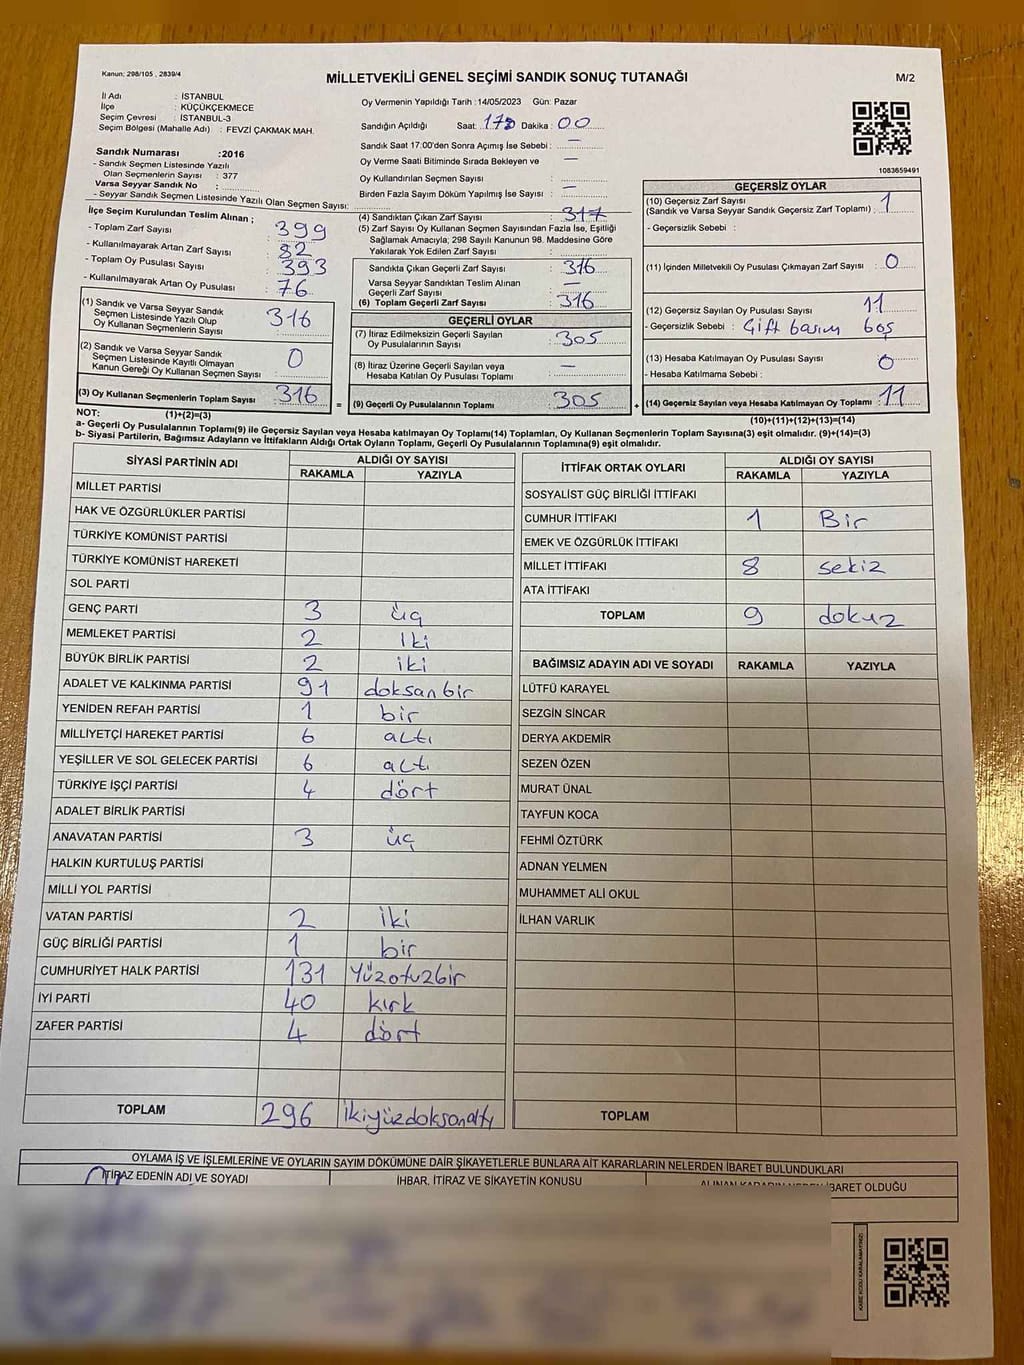 Kanun: 298/105 , 2839/4
MİLLETVEKİLİ GENEL SEÇİMİ SANDIK SONUÇ TUTANAĞI
M/2
İl Adı : İSTANBUL
İlçe : KÜÇÜKÇEKMECE
Seçim Çevresi : İSTANBUL-3
Seçim Bölgesi (Mahalle Adı) : FEVZİ ÇAKMAK MAH.
Sandık Numarası :2016
- Sandık Seçmen Listesinde Yazılı
Olan Seçmenlerin Sayısı : 377
Varsa Seyyar Sandık No :
- Seyyar Sandık Seçmen Listesinde Yazılı Olan Seçmen Sayısı:
Oy Vermenin Yapıldığı Tarih :14/05/2023 Gün: Pazar
Sandığın Açıldığı Saat: 17 Dakika : 00
Sandık Saat 17:00'den Sonra Açımış İse Sebebi : —
Oy Verme Saati Bitiminde Sırada Bekleyen ve —
Oy Kullandırılan Seçmen Sayısı :
Birden Fazla Sayım Döküm Yapılmış İse Sayısı : —
1083659491
İlçe Seçim Kurulundan Teslim Alınan ;
- Toplam Zarf Sayısı : 399
- Kullanılmayarak Artan Zarf Sayısı : 82
- Toplam Oy Pusulası Sayısı : 393
- Kullanılmayarak Artan Oy Pusulası : 76
(1) Sandık ve Varsa Seyyar Sandık
Seçmen Listesinde Yazılı Olup
Oy Kullanan Seçmenlerin Sayısı : 316
(2) Sandık ve Varsa Seyyar Sandık
Seçmen Listesinde Kayıtlı Olmayan
Kanun Gereği Oy Kullanan Seçmen Sayısı : 0
(3) Oy Kullanan Seçmenlerin Toplam Sayısı : 316
(1)+(2)=(3)
(4) Sandıktan Çıkan Zarf Sayısı : 317
(5) Zarf Sayısı Oy Kullanan Seçmen Sayısından Fazla İse, Eşitliği
Sağlamak Amacıyla; 298 Sayılı Kanunun 98. Maddesine Göre
Yakılarak Yok Edilen Zarf Sayısı :
Sandıkta Çıkan Geçerli Zarf Sayısı : 316
Varsa Seyyar Sandıktan Teslim Alınan
Geçerli Zarf Sayısı : —
(6) Toplam Geçerli Zarf Sayısı : 316
GEÇERLİ OYLAR
(7) İtiraz Edilmeksizin Geçerli Sayılan
Oy Pusulalarının Sayısı : 305
(8) İtiraz Üzerine Geçerli Sayılan veya
Hesaba Katılan Oy Pusulası Toplamı : —
= (9) Geçerli Oy Pusulalarının Toplamı : 305
GEÇERSİZ OYLAR
(10) Geçersiz Zarf Sayısı
(Sandık ve Varsa Seyyar Sandık Geçersiz Zarf Toplamı) : 1
- Geçersizlik Sebebi :
(11) İçinden Milletvekili Oy Pusulası Çıkmayan Zarf Sayısı : 0
(12) Geçersiz Sayılan Oy Pusulası Sayısı : 11
- Geçersizlik Sebebi : Çift basım boş
(13) Hesaba Katılmayan Oy Pusulası Sayısı : 0
- Hesaba Katılmama Sebebi :
+ (14) Geçersiz Sayılan veya Hesaba Katılmayan Oy Toplamı : 11
(10)+(11)+(12)+(13)=(14)
NOT:
a- Geçerli Oy Pusulalarının Toplamı(9) ile Geçersiz Sayılan veya Hesaba katılmayan Oy Toplamı(14) Toplamları, Oy Kullanan Seçmenlerin Toplam Sayısına(3) eşit olmalıdır. (9)+(14)=(3)
b- Siyasi Partilerin, Bağımsız Adayların ve İttifakların Aldığı Ortak Oyların Toplamı, Geçerli Oy Pusulalarının Toplamına(9) eşit olmalıdır.
SİYASİ PARTİNİN ADI ALDIĞI OY SAYISI
RAKAMLA YAZIYLA
MİLLET PARTİSİ
HAK VE ÖZGÜRLÜKLER PARTİSİ
TÜRKİYE KOMÜNİST PARTİSİ
TÜRKİYE KOMÜNİST HAREKETİ
SOL PARTİ
GENÇ PARTİ 3 üç
MEMLEKET PARTİSİ 2 iki
BÜYÜK BİRLİK PARTİSİ 2 iki
ADALET VE KALKINMA PARTİSİ 91 doksanbir
YENİDEN REFAH PARTİSİ 1 bir
MİLLİYETÇİ HAREKET PARTİSİ 6 altı
YEŞİLLER VE SOL GELECEK PARTİSİ 6 altı
TÜRKİYE İŞÇİ PARTİSİ 4 dört
ADALET BİRLİK PARTİSİ
ANAVATAN PARTİSİ 3 üç
HALKIN KURTULUŞ PARTİSİ
MİLLİ YOL PARTİSİ
VATAN PARTİSİ 2 iki
GÜÇ BİRLİĞİ PARTİSİ 1 bir
CUMHURİYET HALK PARTİSİ 131 Yüzotuzbir
İYİ PARTİ 40 kırk
ZAFER PARTİSİ 4 dört
TOPLAM 296 ikiyüzdoksanaltı
İTTİFAK ORTAK OYLARI ALDIĞI OY SAYISI
RAKAMLA YAZIYLA
SOSYALİST GÜÇ BİRLİĞİ İTTİFAKI
CUMHUR İTTİFAKI 1 Bir
EMEK VE ÖZGÜRLÜK İTTİFAKI
MİLLET İTTİFAKI 8 sekiz
ATA İTTİFAKI
TOPLAM 9 dokuz
BAĞIMSIZ ADAYIN ADI VE SOYADI RAKAMLA YAZIYLA
LÜTFÜ KARAYEL
SEZGİN SİNCAR
DERYA AKDEMİR
SEZEN ÖZEN
MURAT ÜNAL
TAYFUN KOCA
FEHMİ ÖZTÜRK
ADNAN YELMEN
MUHAMMET ALİ OKUL
İLHAN VARLIK
TOPLAM
OYLAMA İŞ VE İŞLEMLERİNE VE OYLARIN SAYIM DÖKÜMÜNE DAİR ŞİKAYETLERLE BUNLARA AİT KARARLARIN NELERDEN İBARET BULUNDUKLARI
İTİRAZ EDENİN ADI VE SOYADI İHBAR, İTİRAZ VE ŞİKAYETİN KONUSU ALINAN KARARIN NEDEN İBARET OLDUĞU
KARE KODU KARALAMAYINIZ!